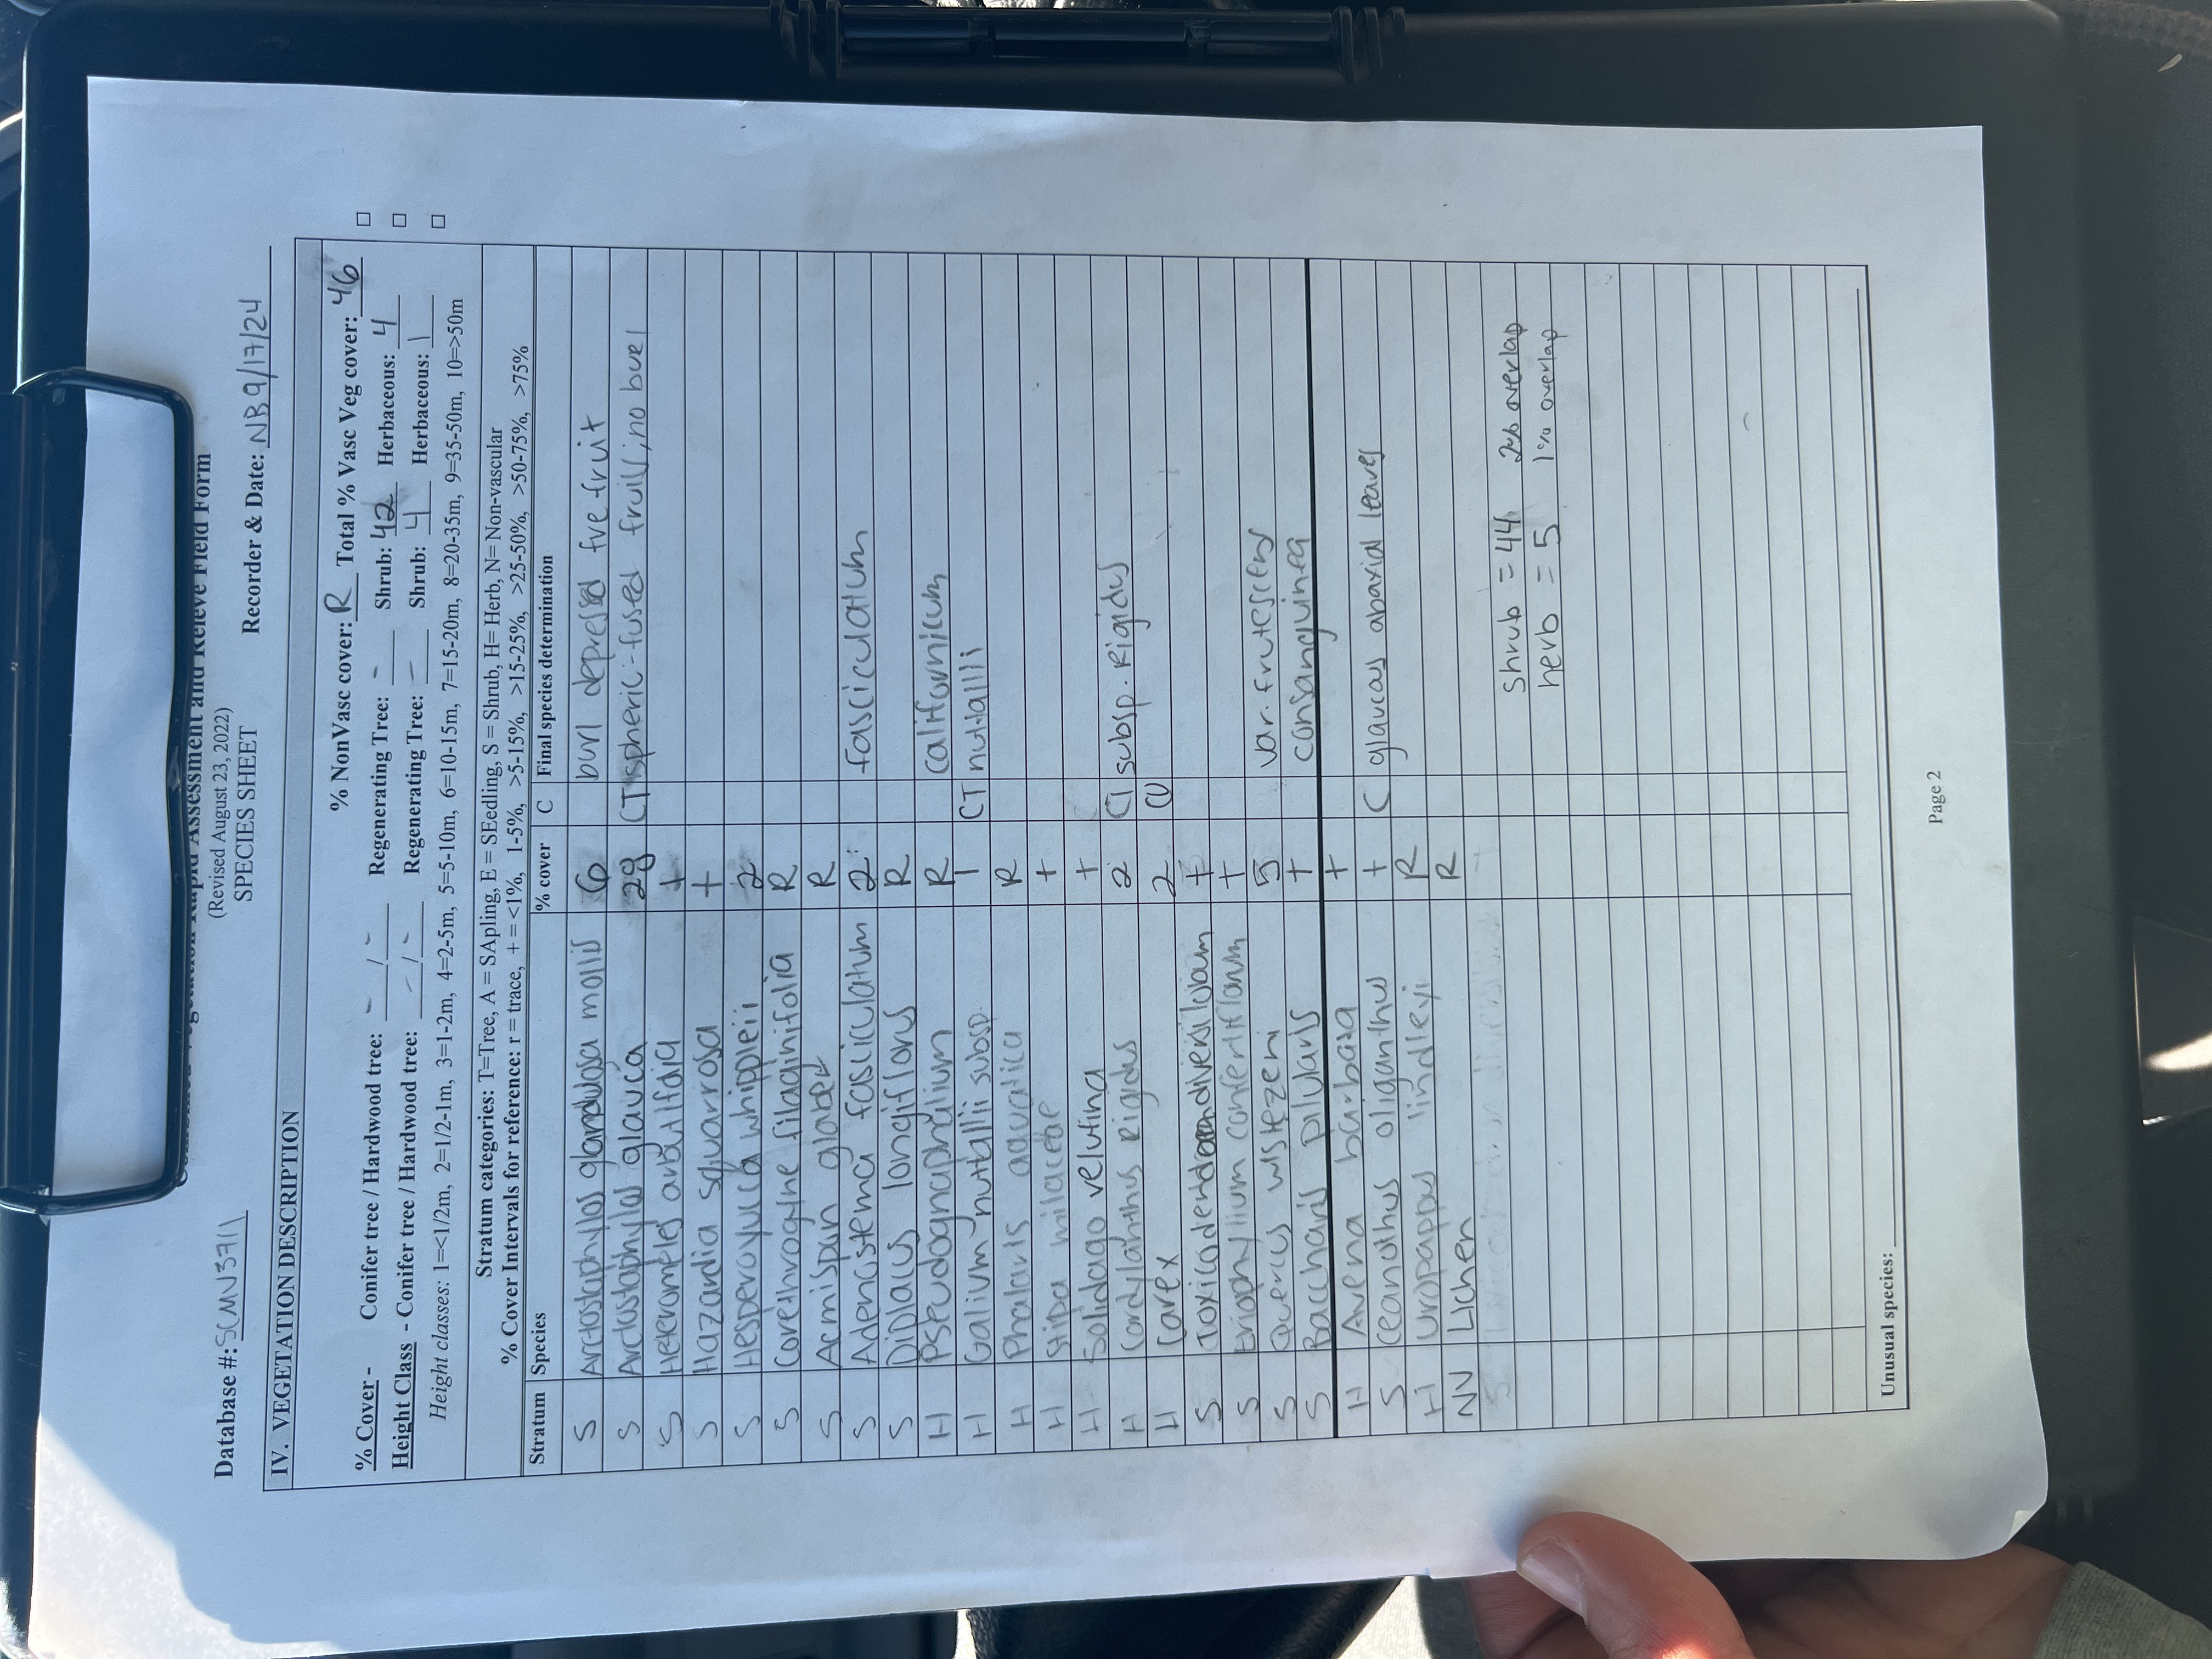 Combined Vegetation Rapid Assessment and Relevé Field Form
(Revised August 23, 2022)
SPECIES SHEET
Database #: SCMV3711 Recorder & Date: NB 9/17/24
IV. VEGETATION DESCRIPTION
% NonVasc cover: R Total % Vasc Veg cover: 46
% Cover - Conifer tree / Hardwood tree: - / - Regenerating Tree: - Shrub: 42 Herbaceous: 4
Height Class - Conifer tree / Hardwood tree: - / - Regenerating Tree: - Shrub: 4 Herbaceous: 1
Height classes: 1=<1/2m, 2=1/2-1m, 3=1-2m, 4=2-5m, 5=5-10m, 6=10-15m, 7=15-20m, 8=20-35m, 9=35-50m, 10=>50m
Stratum categories: T=Tree, A = SApling, E = SEedling, S = Shrub, H= Herb, N= Non-vascular
% Cover Intervals for reference: r = trace, + = <1%, 1-5%, >5-15%, >15-25%, >25-50%, >50-75%, >75%
Stratum Species % cover C Final species determination
S Arctostaphylos glandulosa mollis 6 burl depressed fre fruit
S Arctostaphylos glauca 28 CT spheric-fused fruits, no burl
S Heteromeles arbutifolia +
S Hazardia squarrosa +
S Hesperoyucca whipplei 2
S Corethrogyne filaginifolia R
S Acmispon glaber R
S Adenostema fasciculatum 2 fasciculatum
S Diplacus longiflorus R
H Pseudognaphalium R californicum
H Galium nuttallii subsp. 1 CT nuttallii
H Phalaris aquatica R
H Stipa milaceae +
H Solidago velutina +
H Cordylanthus rigidus 2 CT subsp. rigidus
H Carex 2 CU
S Toxicodendron diversilobum +
S Eriophyllum confertiflorum +
S Quercus wislizeni 5 var. frutescens
S Baccharis pilularis + consanguinea
H Avena barbata +
S Ceanothus oliganthus + C glaucas abaxial leaves
H Uropappus lindleyi R
NV Lichen R
Shrub = 44 2% overlap
herb = 5 1% overlap
Unusual species:
Page 2